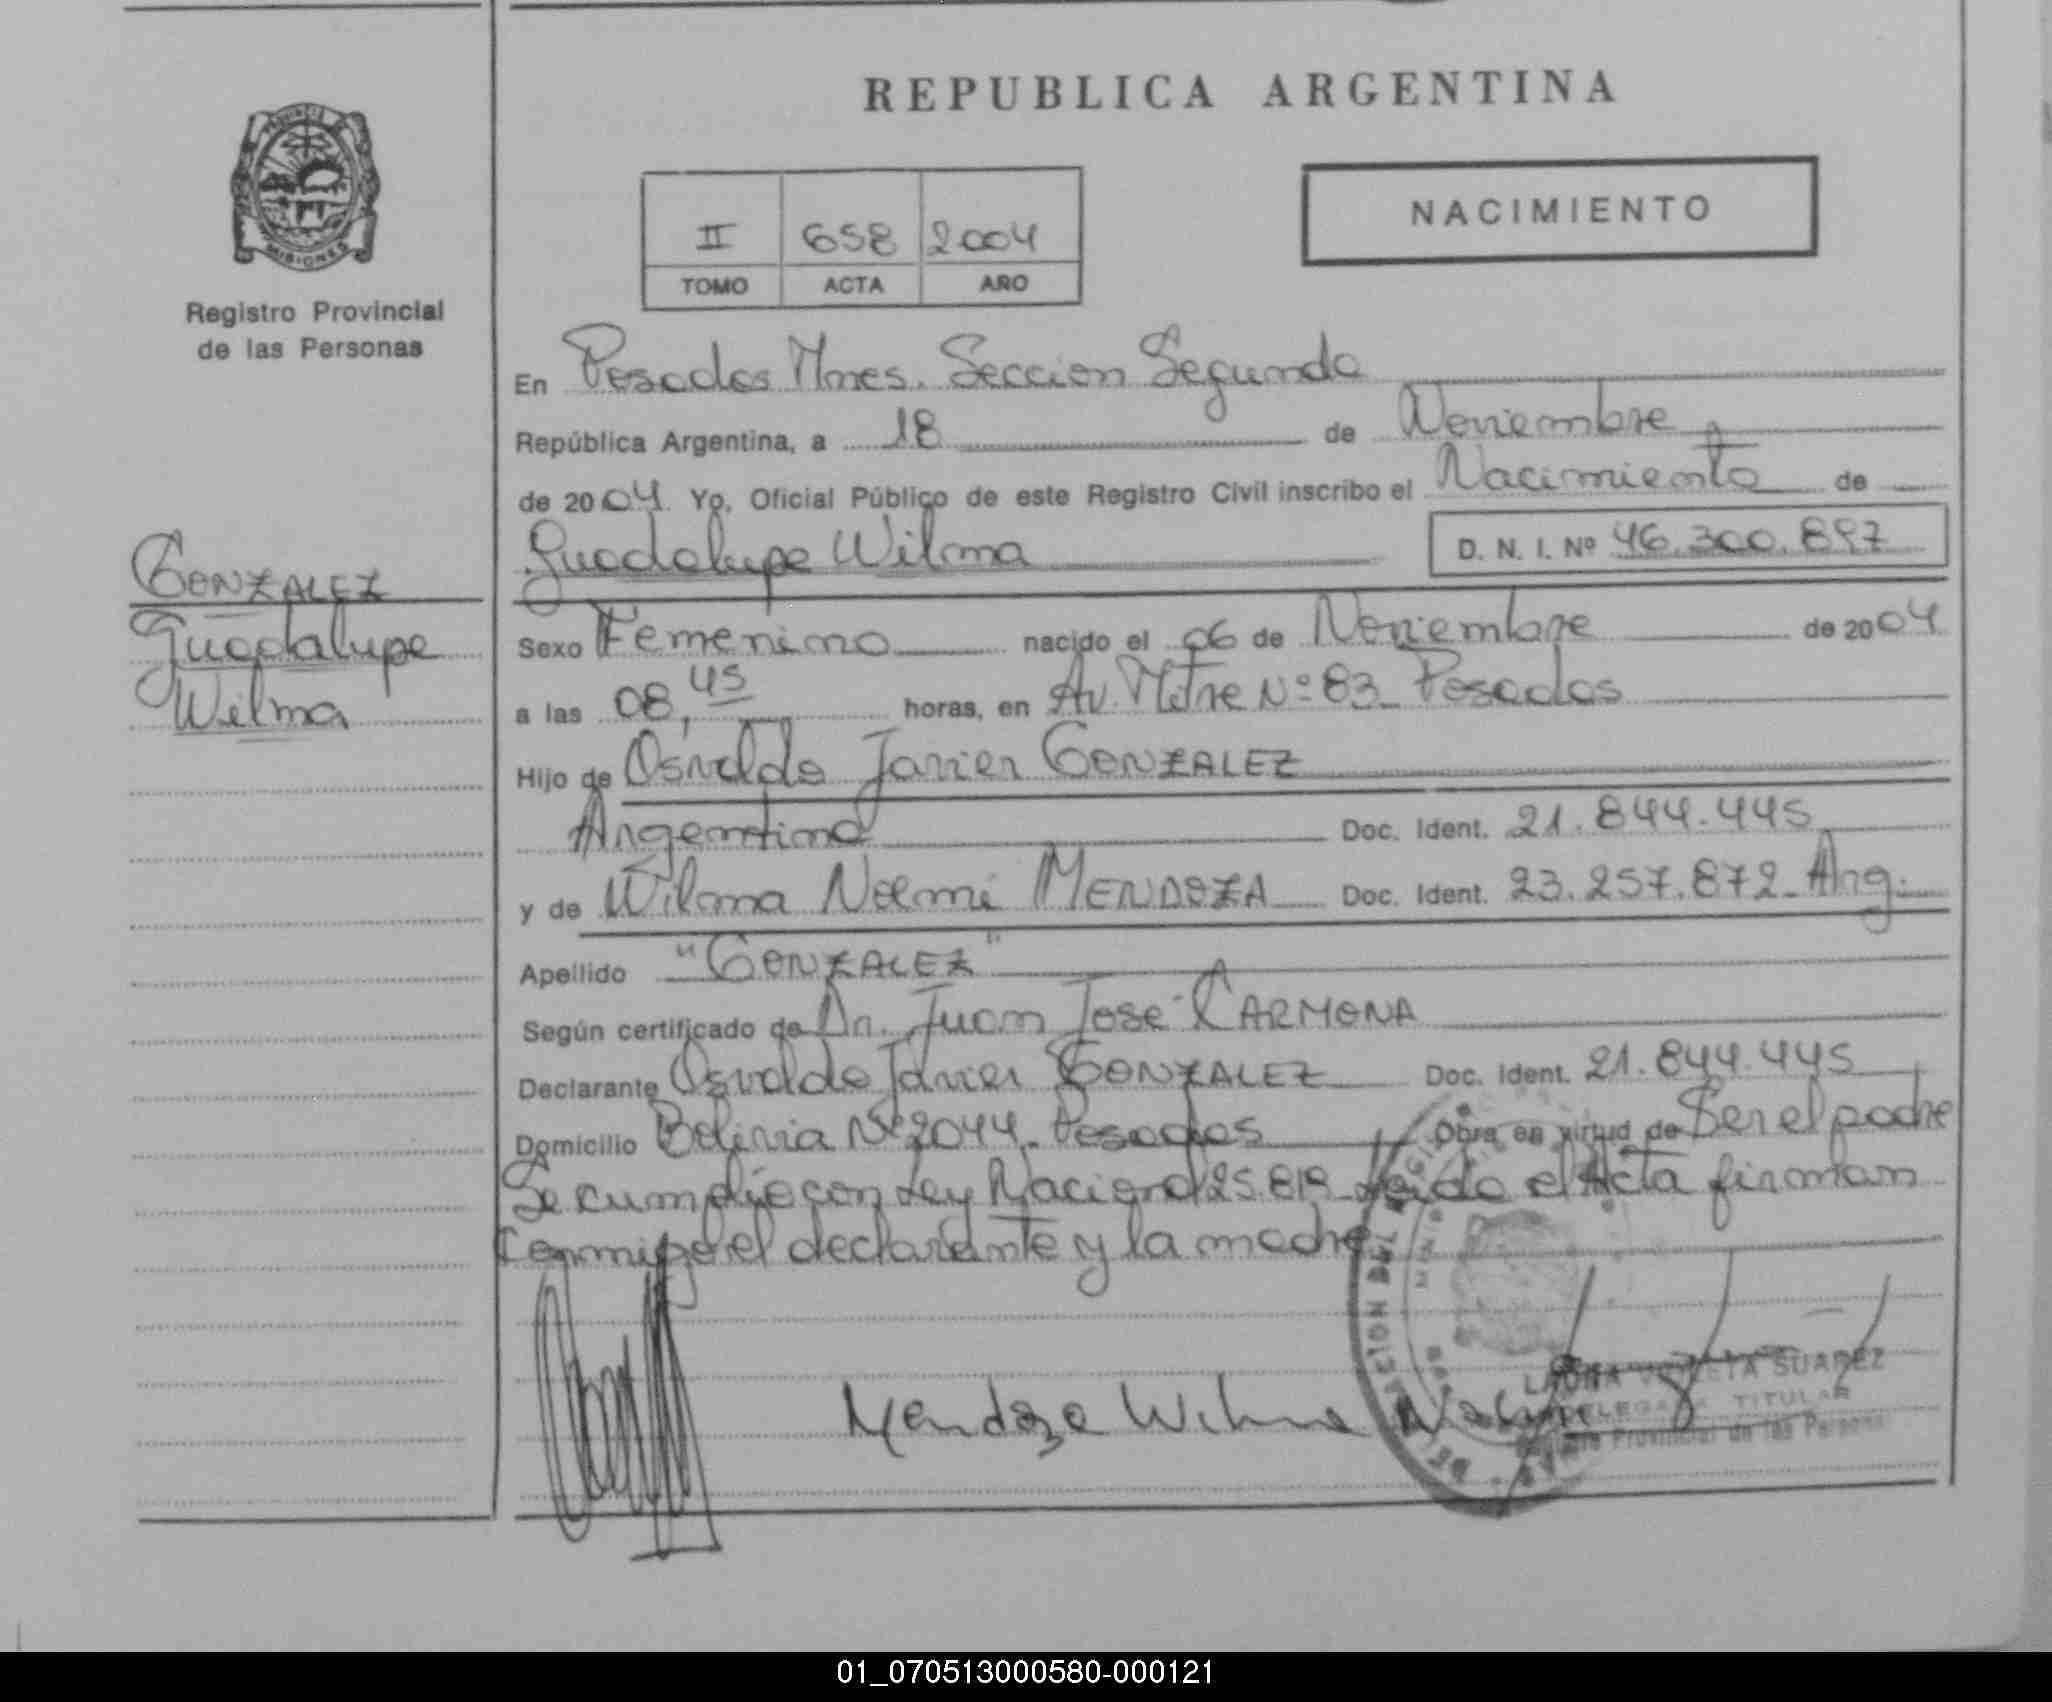 REPUBLICA ARGENTINA
PROVINCIA DE
MISIONES
Registro Provincial
de las Personas
II 658 2004
TOMO ACTA AÑO
NACIMIENTO
En Posadas Mnes. Seccion Segunda
República Argentina, a 18 de Noviembre
de 2004. Yo, Oficial Público de este Registro Civil inscribo el Nacimiento de
Guadalupe Wilma D. N. I. Nº 46.300.897
GONZALEZ
Guadalupe
Wilma
Sexo Femenino nacido el 06 de Noviembre de 2004
a las 08,45 horas, en Av. Mitre Nº 83_ Posadas
Hijo de Osvaldo Javier GONZALEZ
Argentino Doc. Ident. 21.844.445
y de Wilma Noemi MENDOZA Doc. Ident. 23.257.872_ Arg.
Apellido "GONZALEZ"
Según certificado de Dr. Juan José CARMONA
Declarante Osvaldo Javier GONZALEZ Doc. Ident. 21.844.445
Domicilio Bolivia Nº 2044_ Posadas Obra en virtud de Ser el padre
Se cumplió con Ley Nacional 25.819_ Leido el Acta firman
Conmigo el declarante y la madre
Mendoza Wilma
LAURA SUAREZ
DELEGADA TITULAR
Registro Provincial de las Personas
01_070513000580-000121